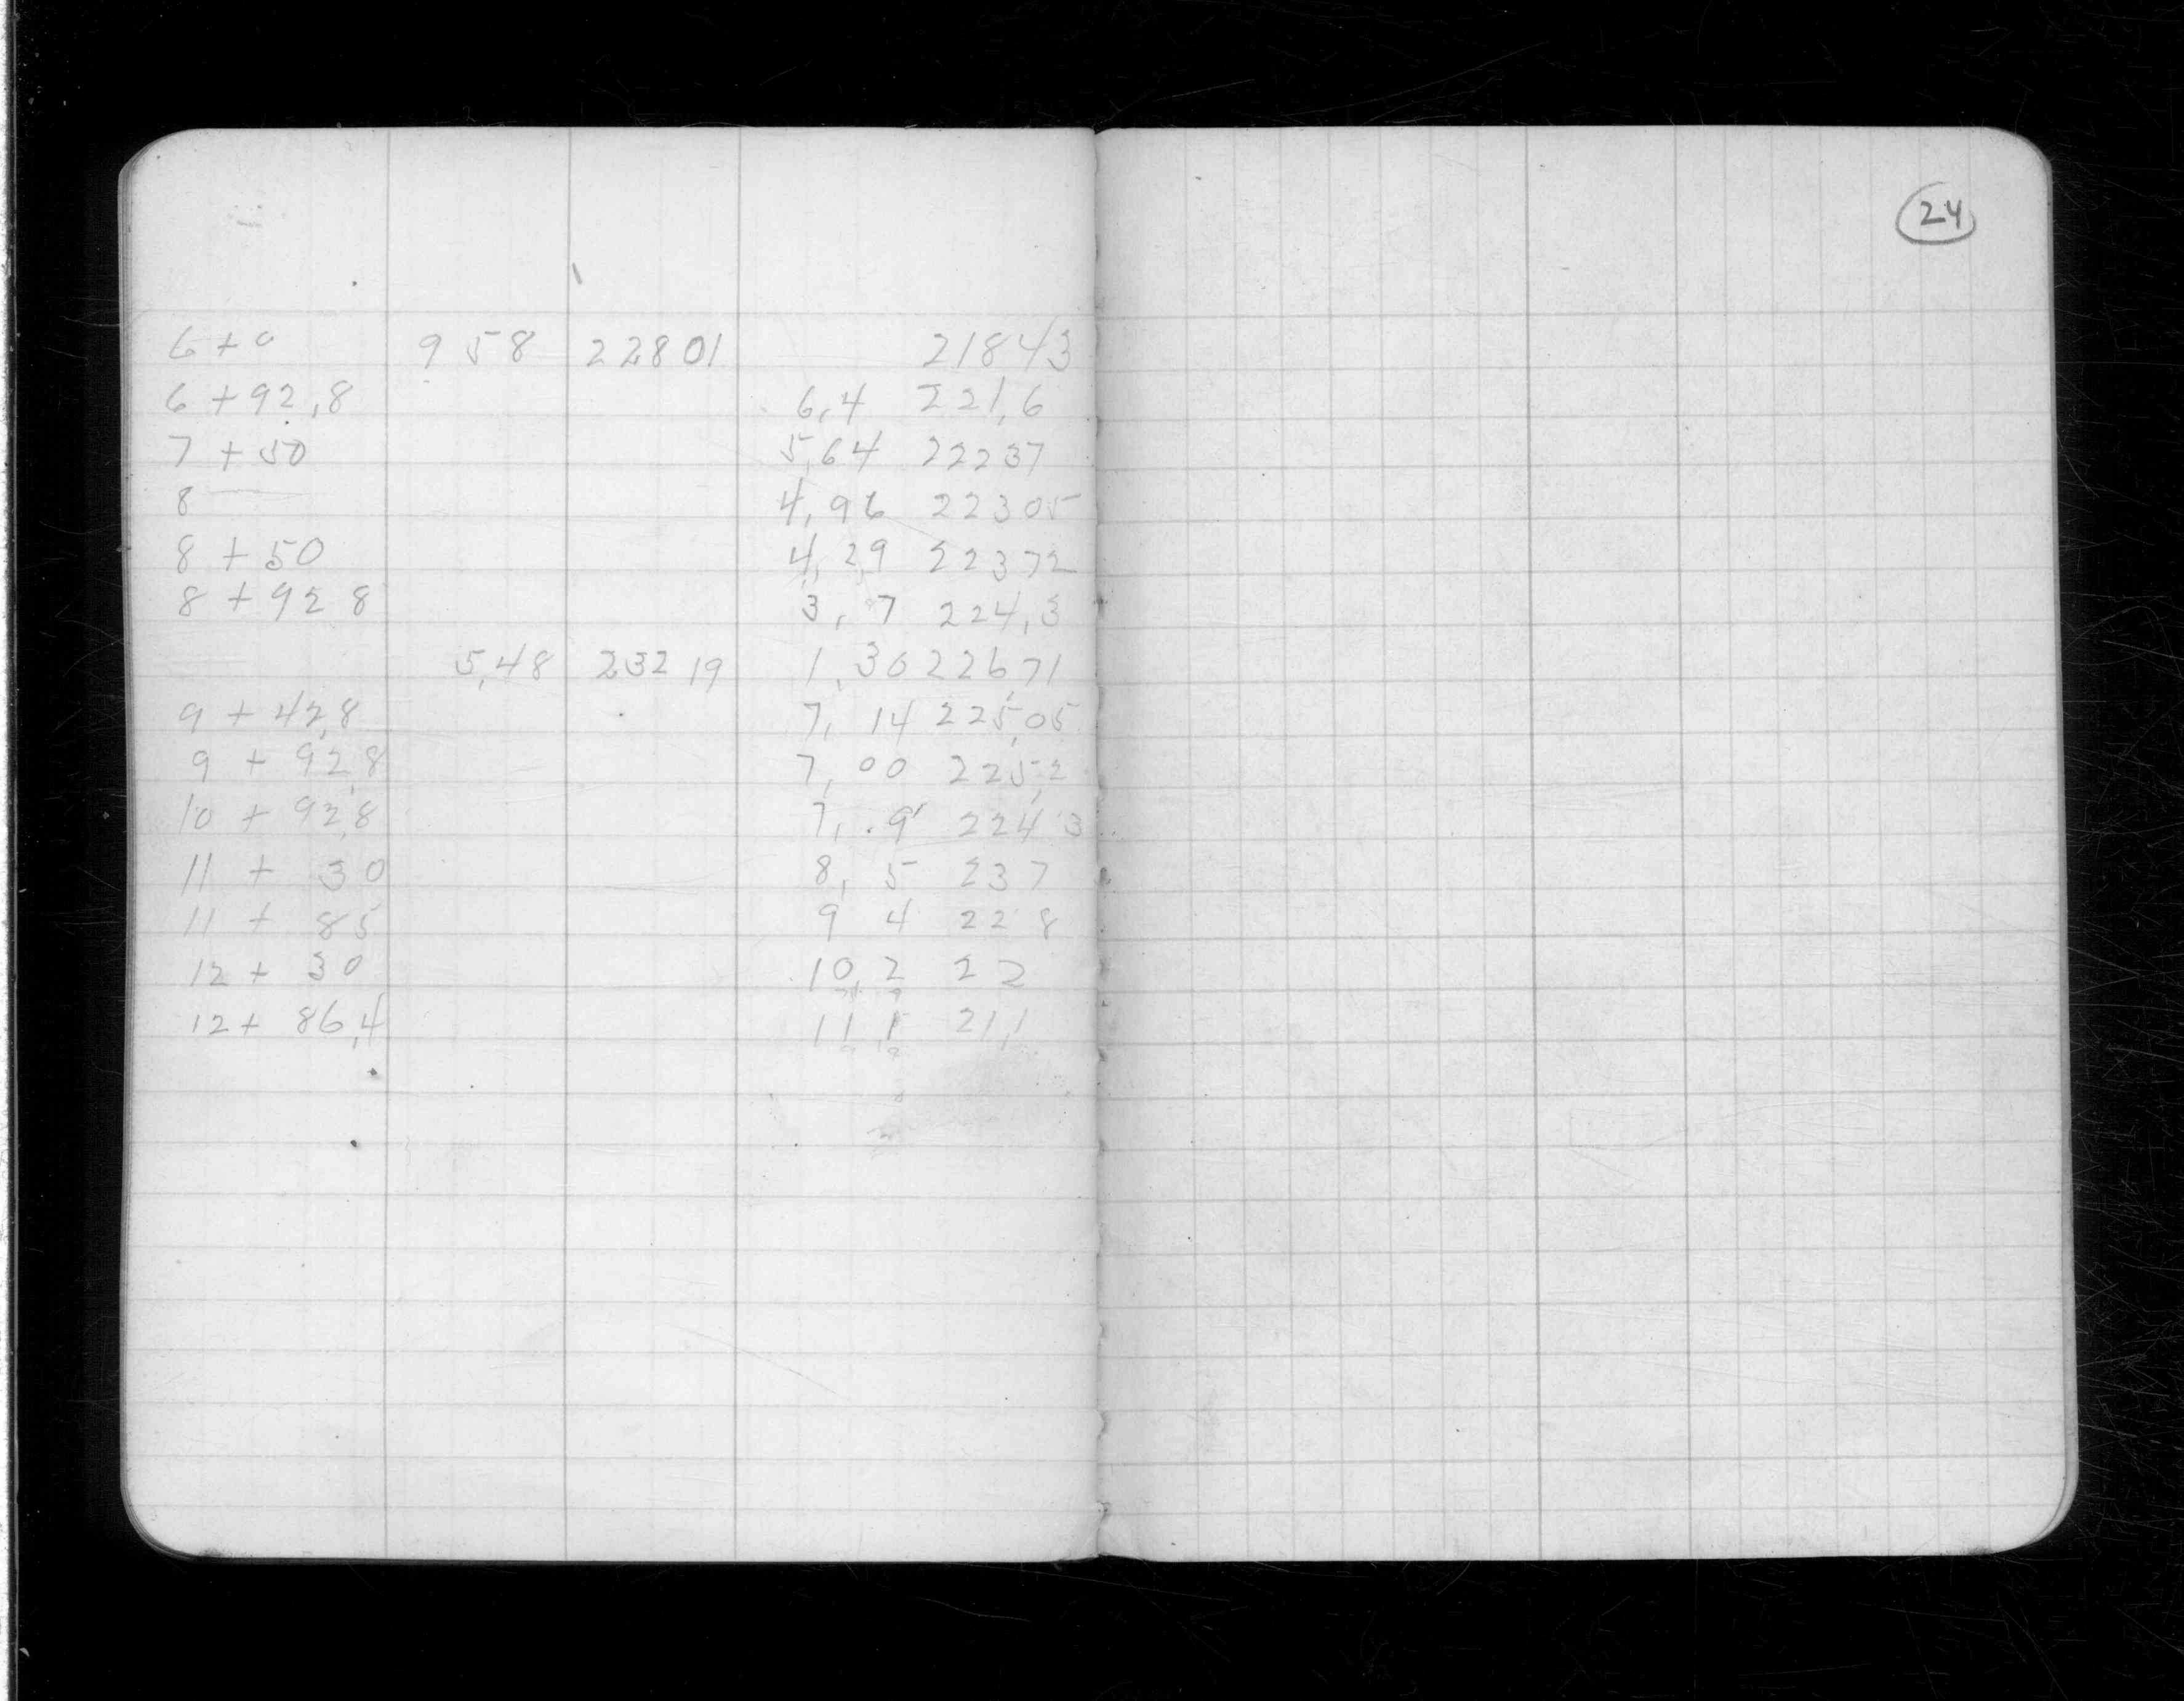 6 + 0 9 58 22801 21843
6 + 92,8 6,4 221,6
7 + 50 5,64 22237
8 4,96 22305
8 + 50 4,29 22372
8 + 92 8 3,7 224,3
5,48 232 19 1,30 226,71
9 + 42,8 7, 14 225,05
9 + 92,8 7,00 225,2
10 + 92,8 7,9 224 3
11 + 30 8, 5 237
11 + 85 9 4 22 8
12 + 30 10,2 22
12 + 86,4 11,1 21,1
24